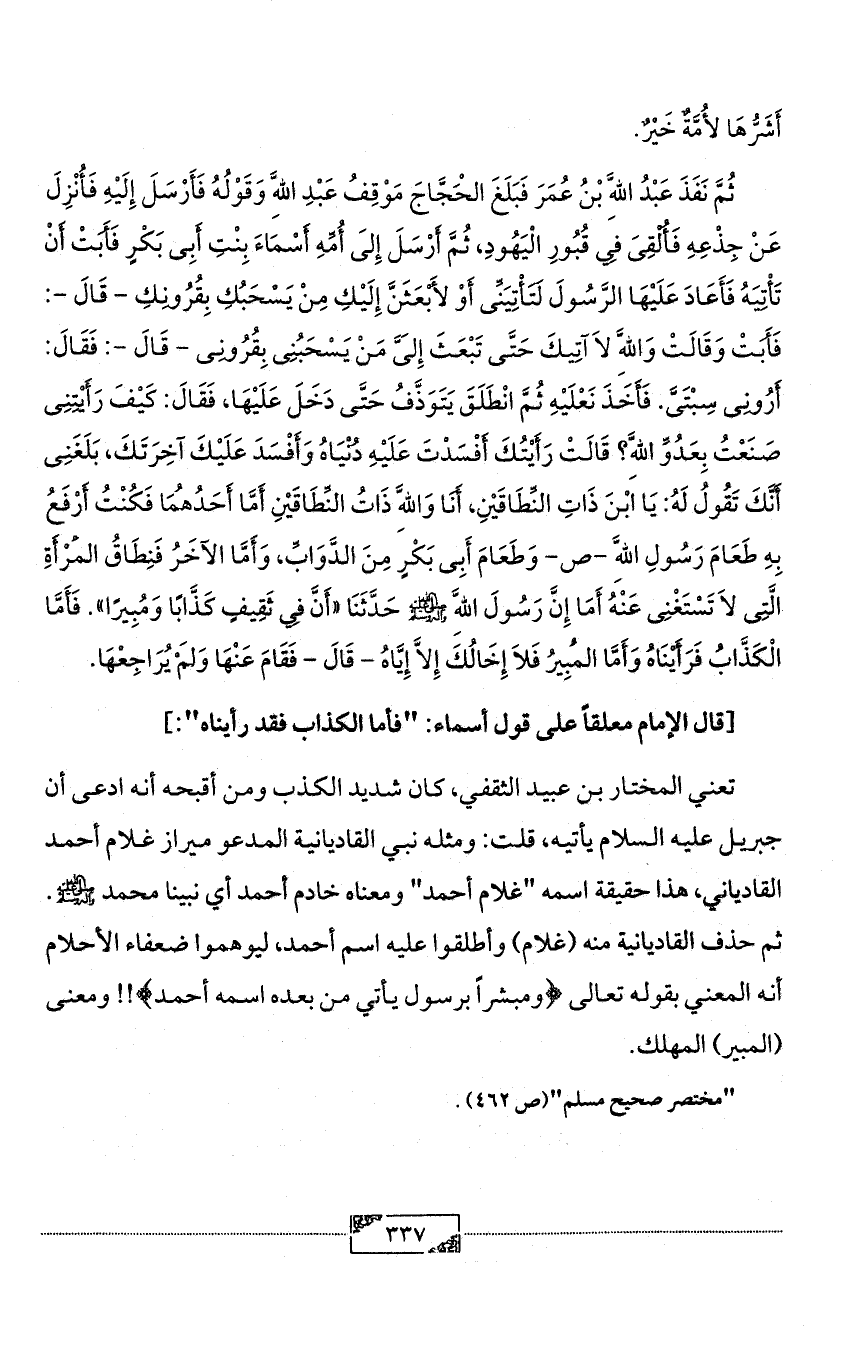 أَشَرُّهَا لأُمَّةٌ خَيْرٌ.
ثُمَّ نَفَذَ عَبْدُ اللهِ بْنُ عُمَرَ فَبَلَغَ الحَجَّاجَ مَوْقِفُ عَبْدِ اللهِ وَقَوْلُهُ فَأَرْسَلَ إِلَيْهِ فَأُنْزِلَ
عَنْ جِذْعِهِ فَأُلْقِىَ فِي قُبُورِ الْيَهُودِ، ثُمَّ أَرْسَلَ إِلَى أُمِّهِ أَسْمَاءَ بِنْتِ أَبِى بَكْرٍ فَأَبَتْ أَنْ
تَأْتِيَهُ فَأَعَادَ عَلَيْهَا الرَّسُولَ لَتَأْتِيَنِّى أَوْ لأَبْعَثَنَّ إِلَيْكِ مِنْ يَسْحَبُكِ بِقُرُونِكِ – قَالَ –:
فَأَبَتْ وَقَالَتْ وَاللهِ لاَ آتِيكَ حَتَّى تَبْعَثَ إِلَىَّ مَنْ يَسْحَبُنِى بِقُرُونِى – قَالَ –: فَقَالَ:
أَرُونِى سِبْتَىَّ. فَأَخَذَ نَعْلَيْهِ ثُمَّ انْطَلَقَ يَتَوَذَّفُ حَتَّى دَخَلَ عَلَيْهَا، فَقَالَ: كَيْفَ رَأَيْتِنِى
صَنَعْتُ بِعَدُوِّ اللهِ؟ قَالَتْ رَأَيْتُكَ أَفْسَدْتَ عَلَيْهِ دُنْيَاهُ وَأَفْسَدَ عَلَيْكَ آخِرَتَكَ، بَلَغَنِى
أَنَّكَ تَقُولُ لَهُ: يَا ابْنَ ذَاتِ النِّطَاقَيْنِ، أَنَا وَاللهِ ذَاتُ النِّطَاقَيْنِ أَمَّا أَحَدُهُمَا فَكُنْتُ أَرْفَعُ
بِهِ طَعَامَ رَسُولِ اللهِ –ص– وَطَعَامَ أَبِى بَكْرٍ مِنَ الدَّوَابِّ، وَأَمَّا الآخَرُ فَنِطَاقُ المَرْأَةِ
الَّتِى لاَ تَسْتَغْنِى عَنْهُ أَمَا إِنَّ رَسُولَ اللهِ ﷺ حَدَّثَنَا «أَنَّ فِي ثَقِيفٍ كَذَّابًا وَمُبِيرًا». فَأَمَّا
الْكَذَّابُ فَرَأَيْنَاهُ وَأَمَّا المُبِيرُ فَلاَ إِخَالُكَ إِلاَّ إِيَّاهُ – قَالَ – فَقَامَ عَنْهَا وَلَمْ يُرَاجِعْهَا.
[قال الإمام معلقاً على قول أسماء: "فأما الكذاب فقد رأيناه":]
تعني المختار بن عبيد الثقفي، كان شديد الكذب ومن أقبحه أنه ادعى أن
جبريل عليه السلام يأتيه، قلت: ومثله نبي القاديانية المدعو ميراز غلام أحمد
القادياني، هذا حقيقة اسمه "غلام أحمد" ومعناه خادم أحمد أي نبينا محمد ﷺ.
ثم حذف القاديانية منه (غلام) وأطلقوا عليه اسم أحمد، ليوهموا ضعفاء الأحلام
أنه المعني بقوله تعالى ﴿ومبشراً برسول يأتي من بعده اسمه أحمد﴾!! ومعنى
(المبير) المهلك.
"مختصر صحيح مسلم"(ص ٤٦٢).
٣٣٧